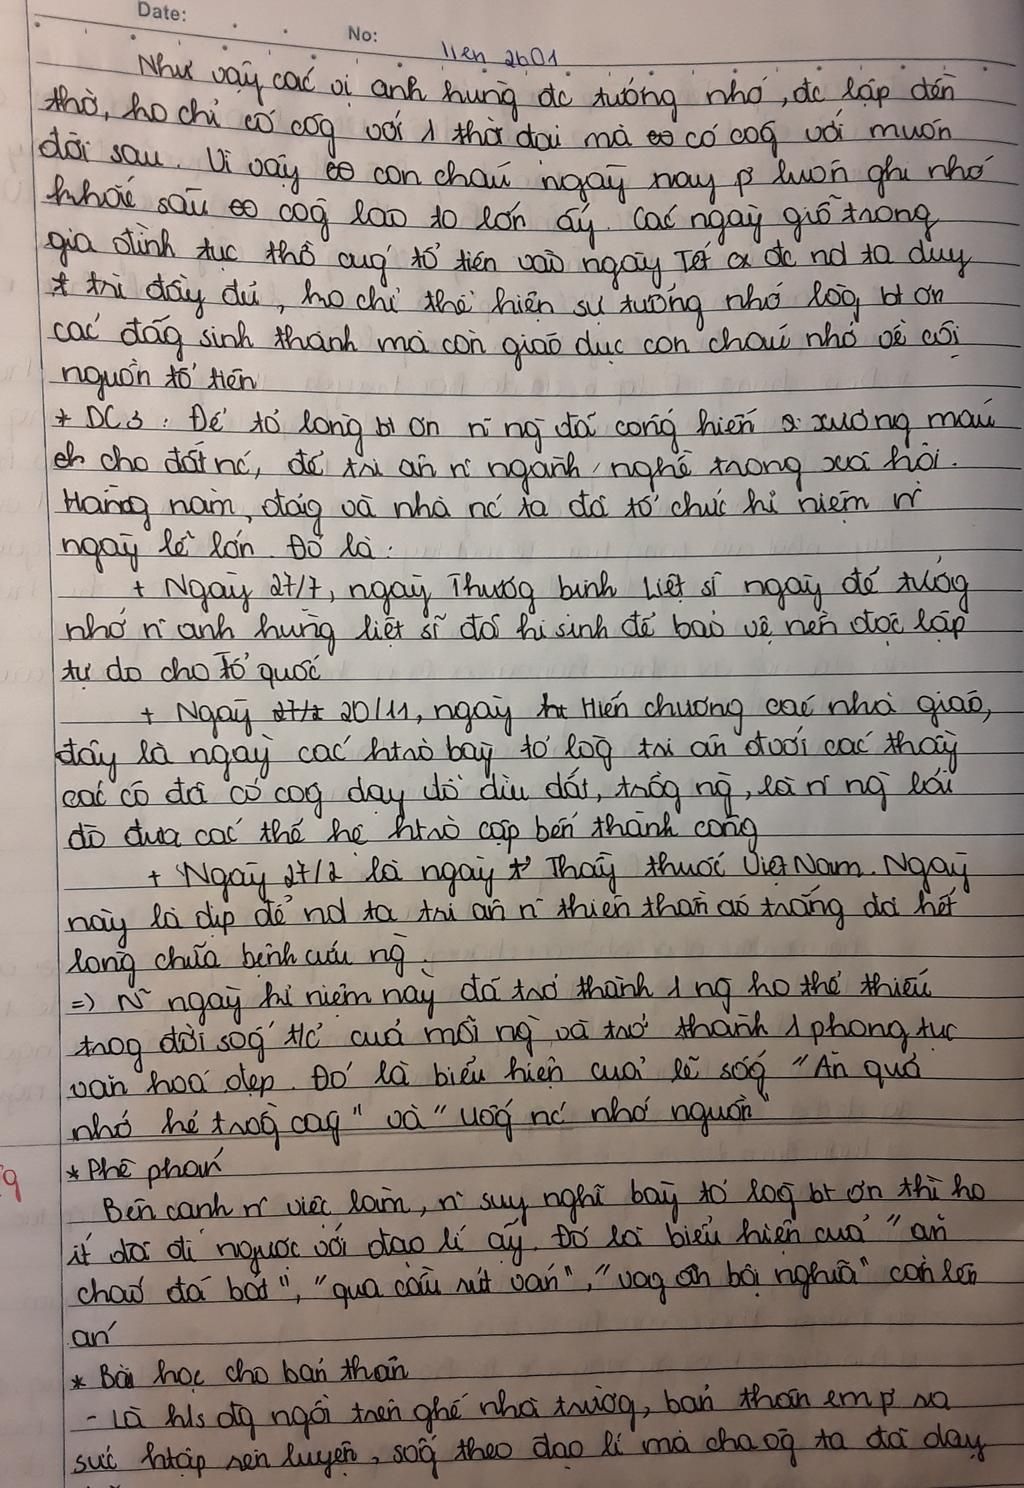 Date:
No:
Như vậy các vị anh hùng đc tưởng nhớ, đc lập đền
thờ, ko chỉ có côg với 1 thời đại mà có côg với muôn
đời sau. Vì vậy con cháu ngày nay p luôn ghi nhớ
khắc sâu côg lao to lớn ấy. Các ngày giỗ trong
gia đình tục thờ cúg tổ tiên vào ngày Tết đc nd ta duy
trì đầy đủ, ko chỉ thể hiện sự tưởng nhớ lòg bt ơn
các đấg sinh thành mà còn giáo dục con cháu nhớ về cội
nguồn tổ tiên
* DC3: Để tỏ lòng bt ơn n~ ng` đã cống hiến xương máu
cho đất nc', để tri ân n~ ngành, nghề trong xã hội.
Hằng năm, đảg và nhà nc' ta đã tổ chức kỉ niệm n~
ngày lễ lớn. Đó là:
+ Ngày 27/7, ngày Thươg binh Liệt sĩ ngày để tưởng
nhớ n~ anh hùng liệt sĩ đã hi sinh để bảo vệ nền độc lập
tự do cho Tổ quốc
+ Ngày 20/11, ngày Hiến chương các nhà giáo,
đây là ngày các htrò bày tỏ lòg tri ân đvới các thầy
các cô đã có côg dạy dỗ dìu dắt, trồg ng`, là n~ ng` lái
đò đưa các thế hệ htrò cập bến thành công
+ Ngày 27/2 là ngày Thầy thuốc Việt Nam. Ngày
này là dịp để nd ta tri ân n~ thiên thần áo trắng đã hết
lòng chữa bệnh cứu ng`.
=> N~ ngày kỉ niệm này đã trở thành 1 ng ko thể thiếu
trog đời sốg t/c' của mỗi ng` và trở thành 1 phong tục
văn hoá đẹp. Đó là biểu hiện của lẽ sốg "Ăn quả
nhớ kẻ trồg câg" và "Uốg nc' nhớ nguồn"
* Phê phán
Bên cạnh n~ việc làm, n~ suy nghĩ bày tỏ lòg bt ơn thì ko
ít đi ngược với đạo lí ấy. Đó là biểu hiện của "ăn
cháo đá bát", "qua cầu rút ván", "vog ơn bội nghĩa" cần lên
án
* Bài học cho bản thân
- Là h/s đg ngồi trên ghế nhà trường, bản thân em p ra
sức htập rèn luyện, sốg theo đạo lí mà cha ôg ta đã dạy